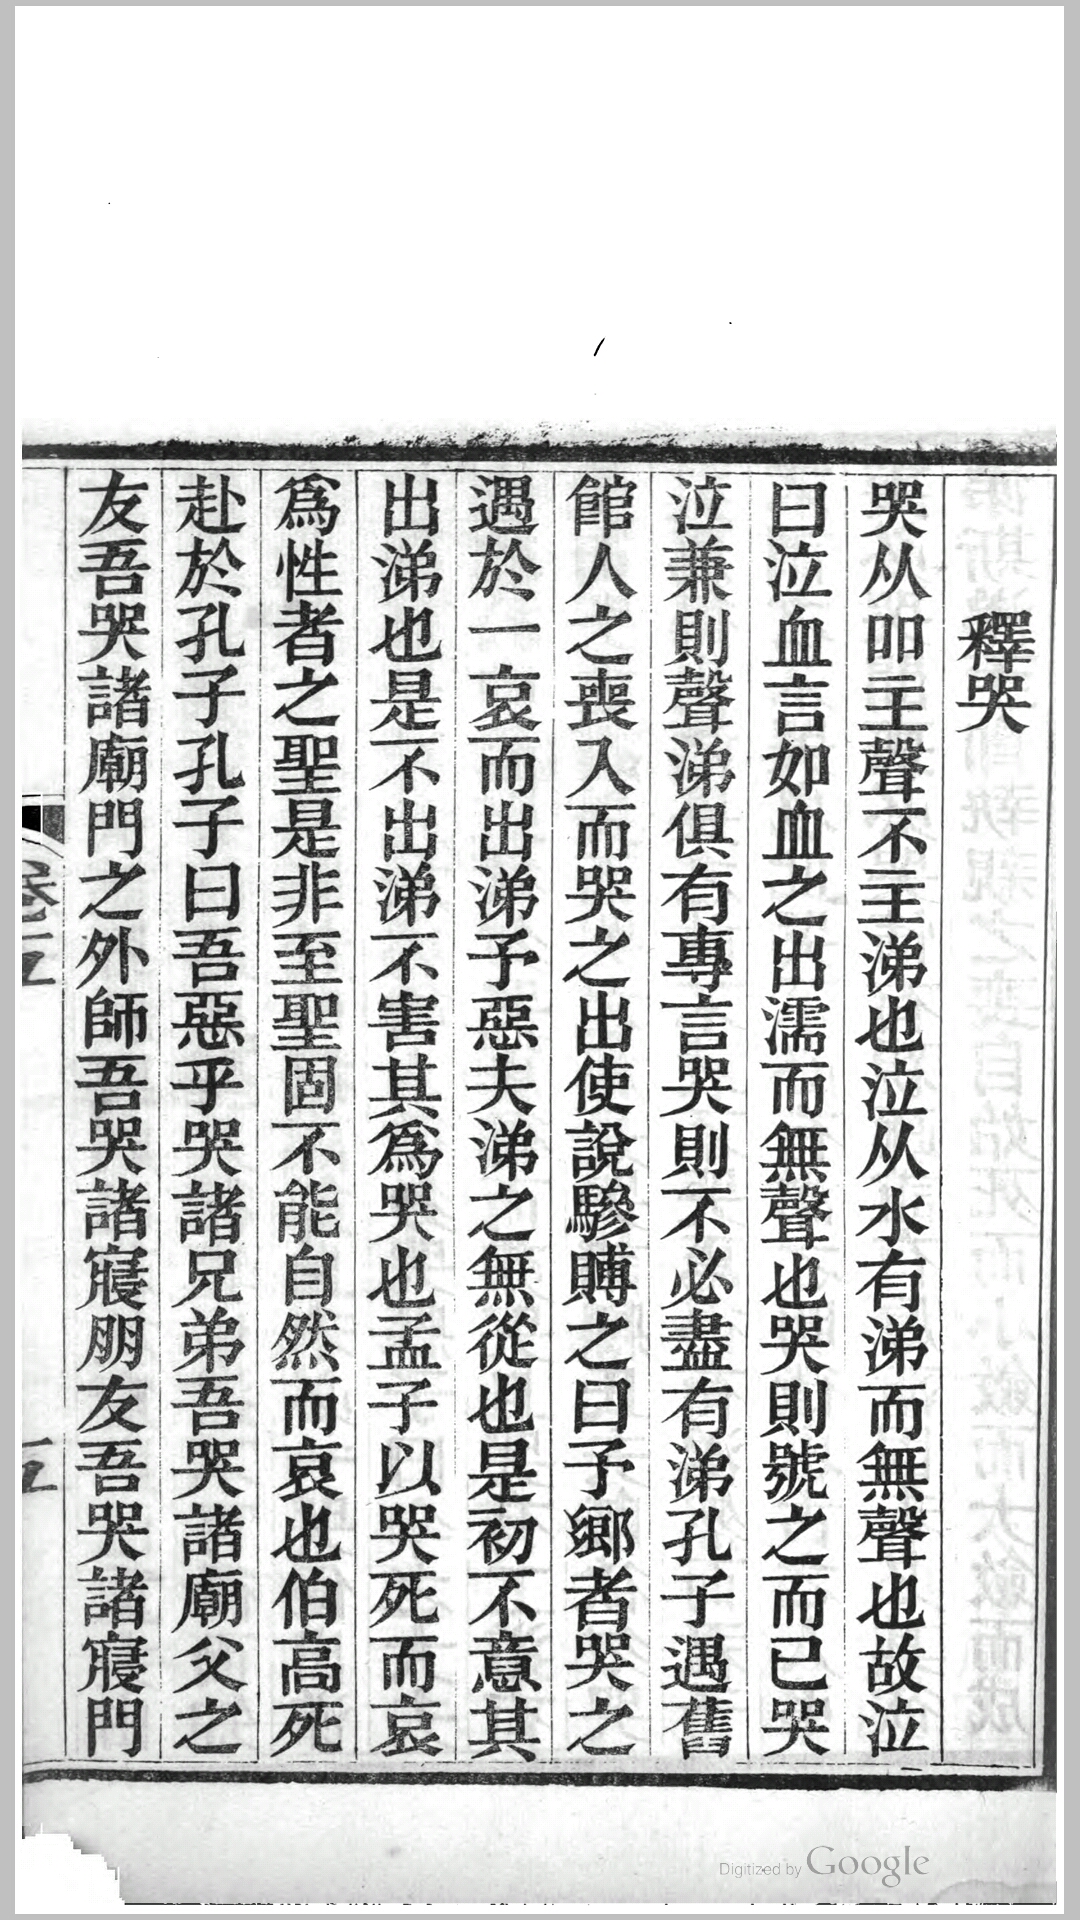 釋哭
哭从吅主聲不主涕也泣从水有涕而無聲也故泣
曰泣血言如血之出濡而無聲也哭則號之而已哭
泣兼則聲涕俱有專言哭則不必盡有涕孔子遇舊
館人之喪入而哭之出使說驂賻之曰予鄉者哭之
遇於一哀而出涕予惡夫涕之無從也是初不意其
出涕也是不出涕不害其爲哭也孟子以哭死而哀
爲性者之聖是非至聖固不能自然而哀也伯高死
赴於孔子孔子曰吾惡乎哭諸兄弟吾哭諸廟父之
友吾哭諸廟門之外師吾哭諸寢朋友吾哭諸寢門
卷五
Digitized by Google